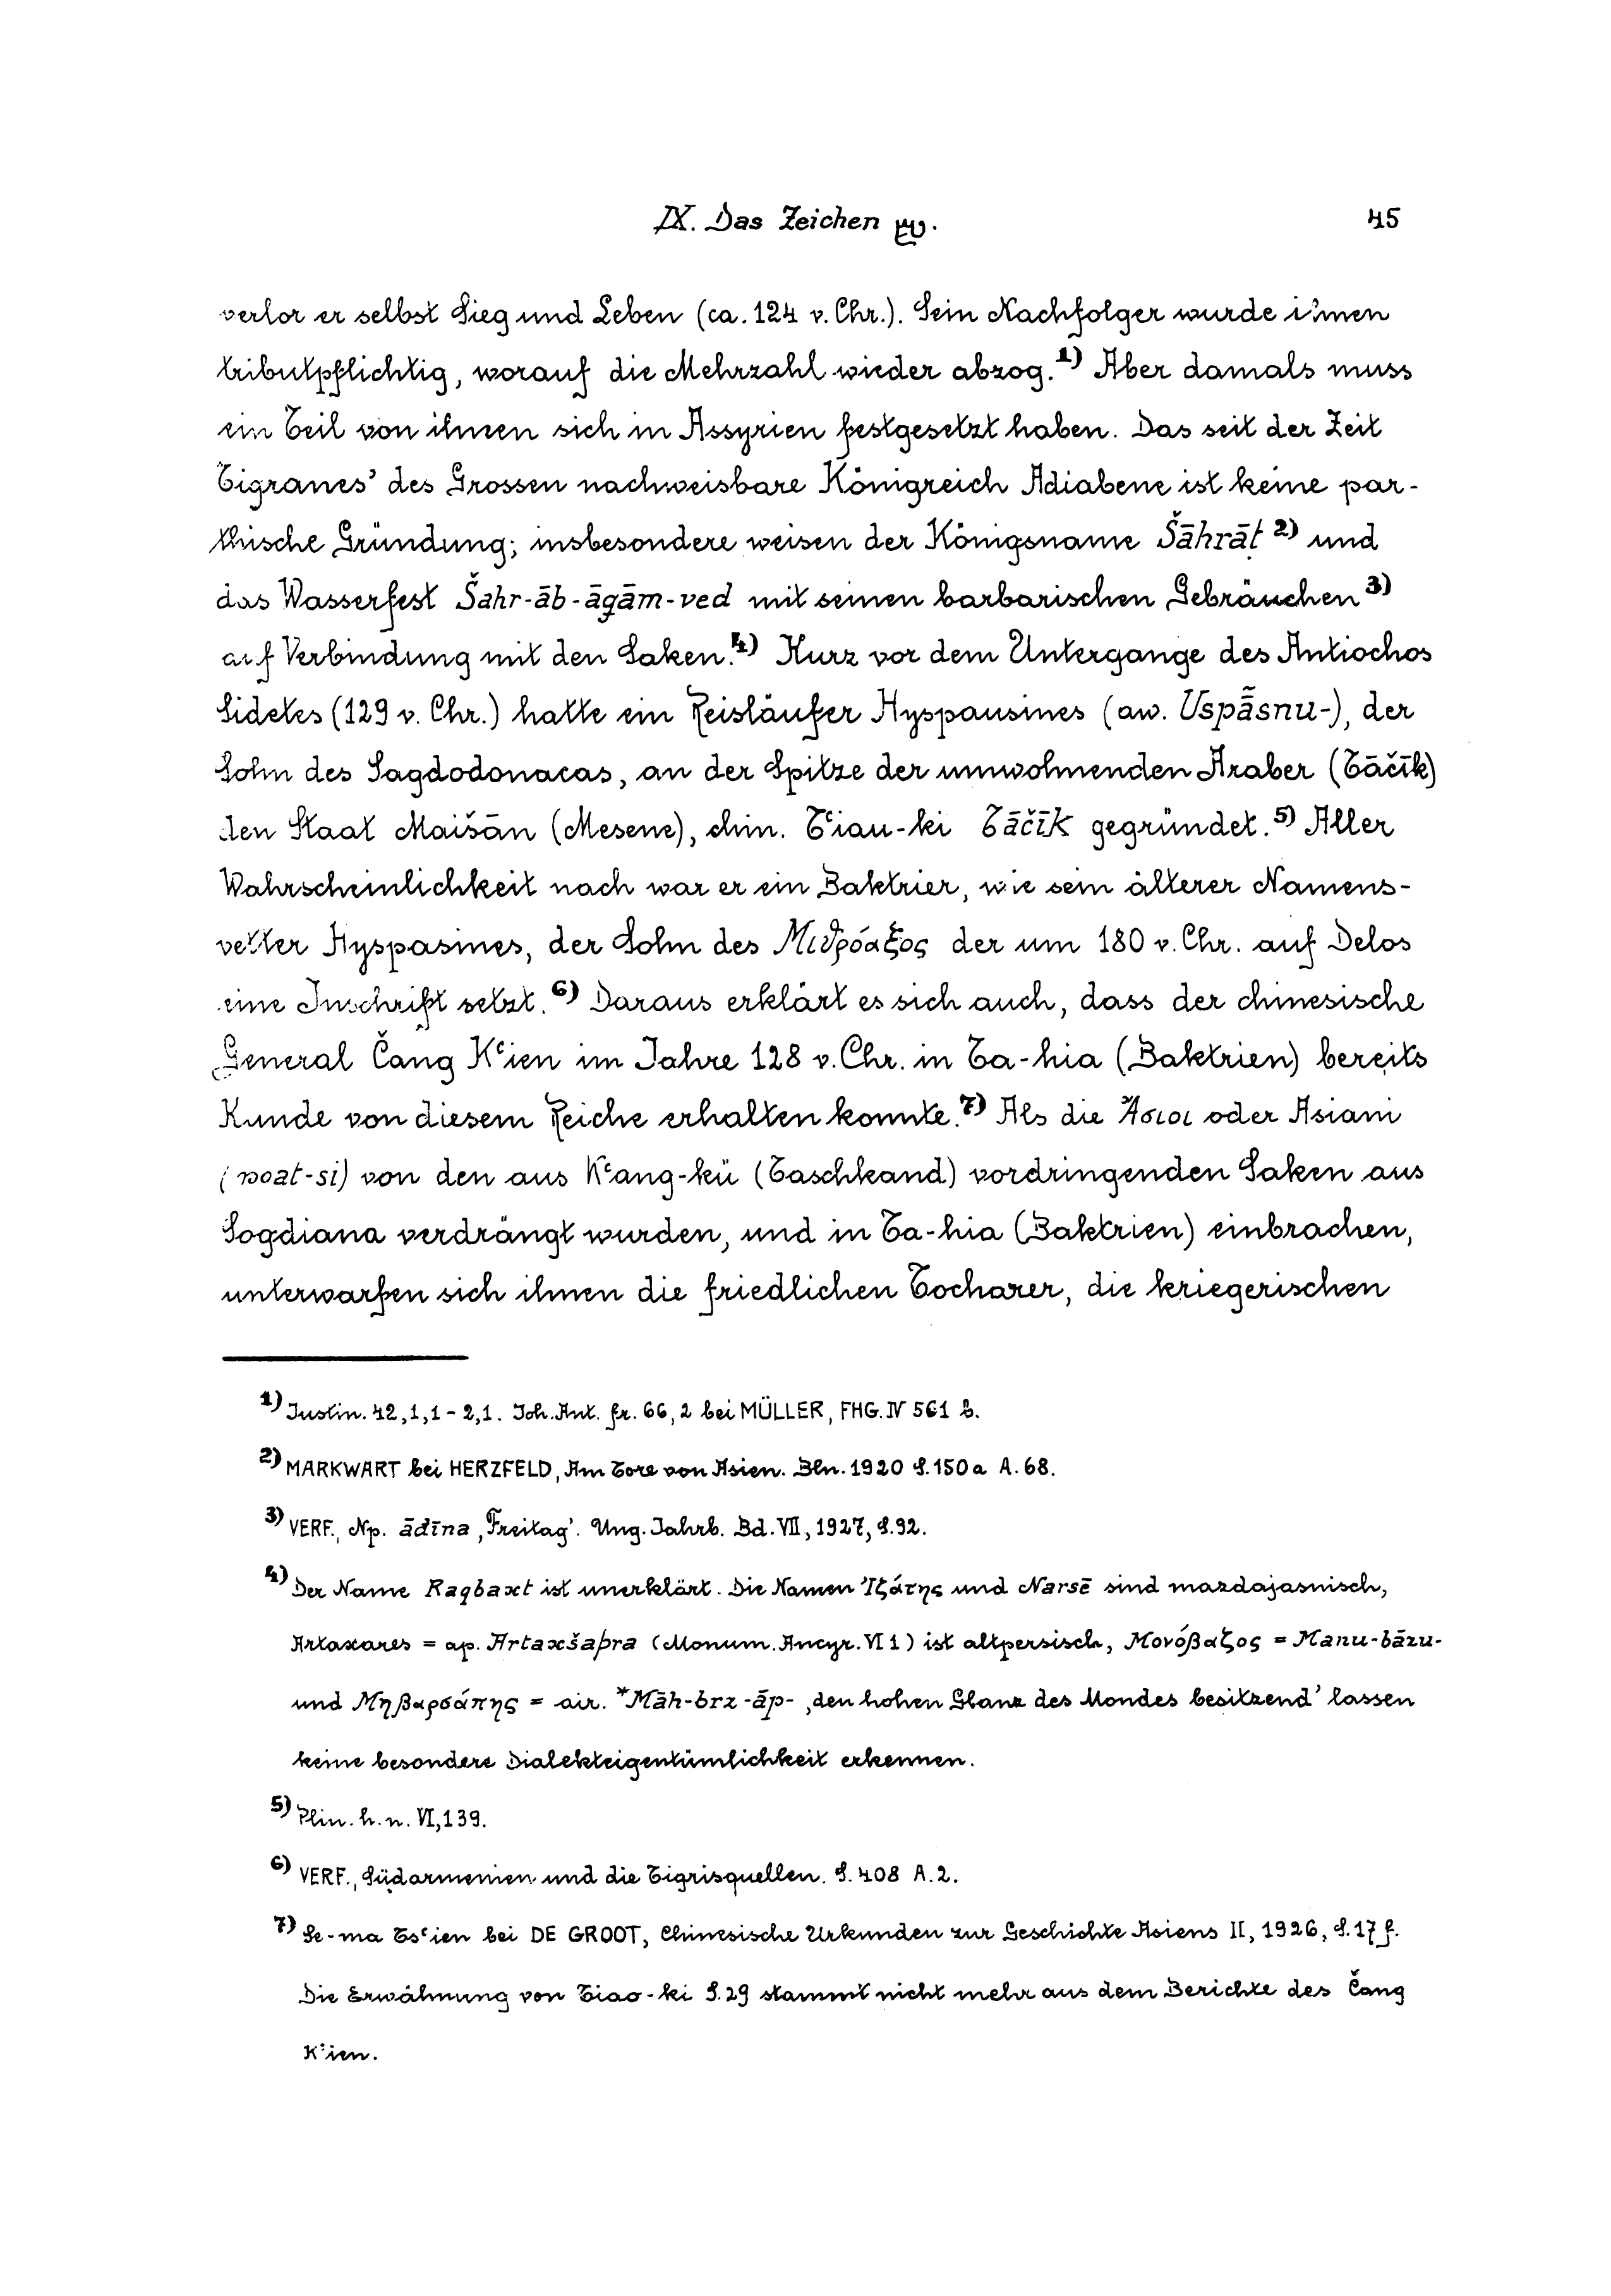 IX. Das Zeichen . 45
verlor er selbst Sieg und Leben (ca. 124 v. Chr.). Sein Nachfolger wurde ihnen
tributpflichtig, worauf die Mehrzahl wieder abzog.¹⁾ Aber damals muss
ein Teil von ihnen sich in Assyrien festgesetzt haben. Das seit der Zeit
Tigranes' des Grossen nachweisbare Königreich Adiabene ist keine par-
thische Gründung; insbesondere weisen der Königsname Šāhrāṭ ²⁾ und
das Wasserfest Šahr-āb-āgām-ved mit seinen barbarischen Gebräuchen ³⁾
auf Verbindung mit den Saken.⁴⁾ Kurz vor dem Untergange des Antiochos
Sidetes (129 v. Chr.) hatte ein Reisläufer Hyspausines (aw. Uspā̃snu-), der
Sohn des Sagdodonacas, an der Spitze der umwohnenden Araber (Tāčīk)
den Staat Maišān (Mesene), chin. Tʿiau-ki Tāčīk gegründet.⁵⁾ Aller
Wahrscheinlichkeit nach war er ein Baktrier, wie sein älterer Namens-
vetter Hyspasines, der Sohn des Μιθρόαξος der um 180 v. Chr. auf Delos
eine Inschrift setzt.⁶⁾ Daraus erklärt es sich auch, dass der chinesische
General Čang Kʿien im Jahre 128 v. Chr. in Ta-hia (Baktrien) bereits
Kunde von diesem Reiche erhalten konnte.⁷⁾ Als die Ἄσιοι oder Asiani
(ʷoat-si) von den aus Kʿang-kü (Taschkand) vordringenden Saken aus
Sogdiana verdrängt wurden, und in Ta-hia (Baktrien) einbrachen,
unterwarfen sich ihnen die friedlichen Tocharer, die kriegerischen
¹⁾ Justin. 42,1,1-2,1. Joh. Ant. fr. 66, 2 bei MÜLLER, FHG. IV 561 b.
²⁾ MARKWART bei HERZFELD, Am Tore von Asien. Bln. 1920 S. 150a A. 68.
³⁾ VERF., Np. ādīna ‚Freitag'. Ung. Jahrb. Bd. VII, 1927, S. 92.
⁴⁾ Der Name Raqbaxt ist unerklärt. Die Namen Ἰζάτης und Narsē sind mazdajasnisch,
Artaxares = ap. Artaxšaþra (Monum. Ancyr. VI 1) ist altpersisch, Μονόβαζος = Manu-bāzu-
und Μηβαρσάπης = air. *Māh-brz-āp- ‚den hohen Glanz des Mondes besitzend' lassen
keine besondere Dialekteigentümlichkeit erkennen.
⁵⁾ Plin. h. n. VI,139.
⁶⁾ VERF., Südarmenien und die Tigrisquellen. S. 408 A. 2.
⁷⁾ Se-ma Tsʿien bei DE GROOT, Chinesische Urkunden zur Geschichte Asiens II, 1926, S. 17 f.
Die Erwähnung von Tiao-ki S. 29 stammt nicht mehr aus dem Berichte des Čang
Kʿien.